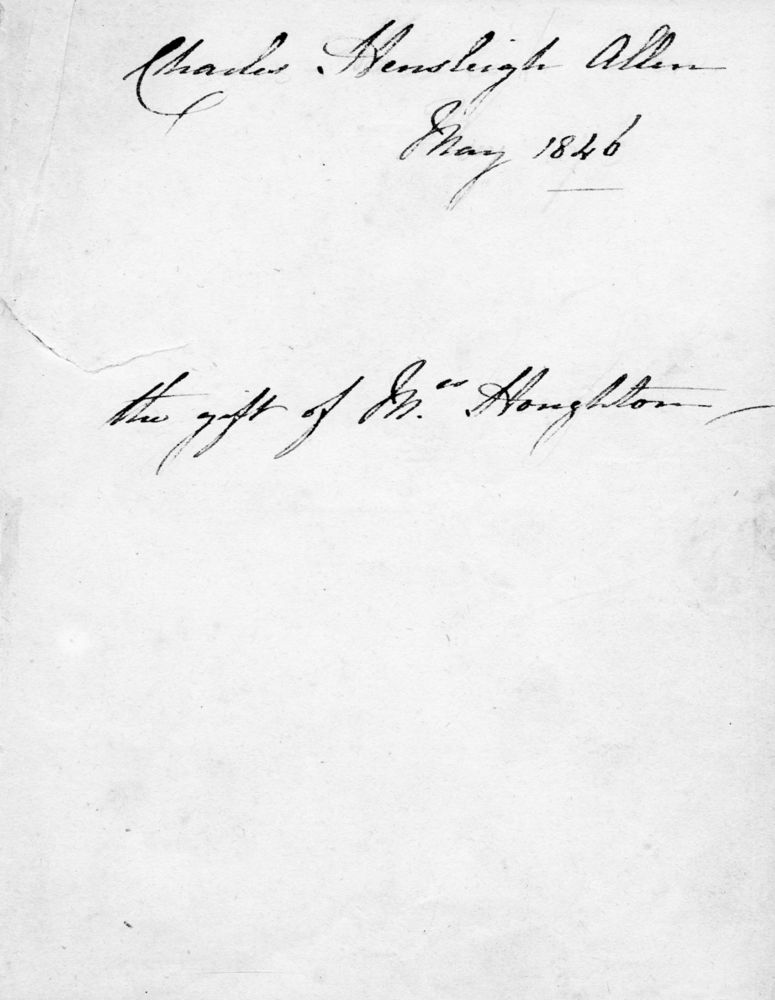 Charles Hensleigh Allen
May 1846
the gift of Mrs. Houghton